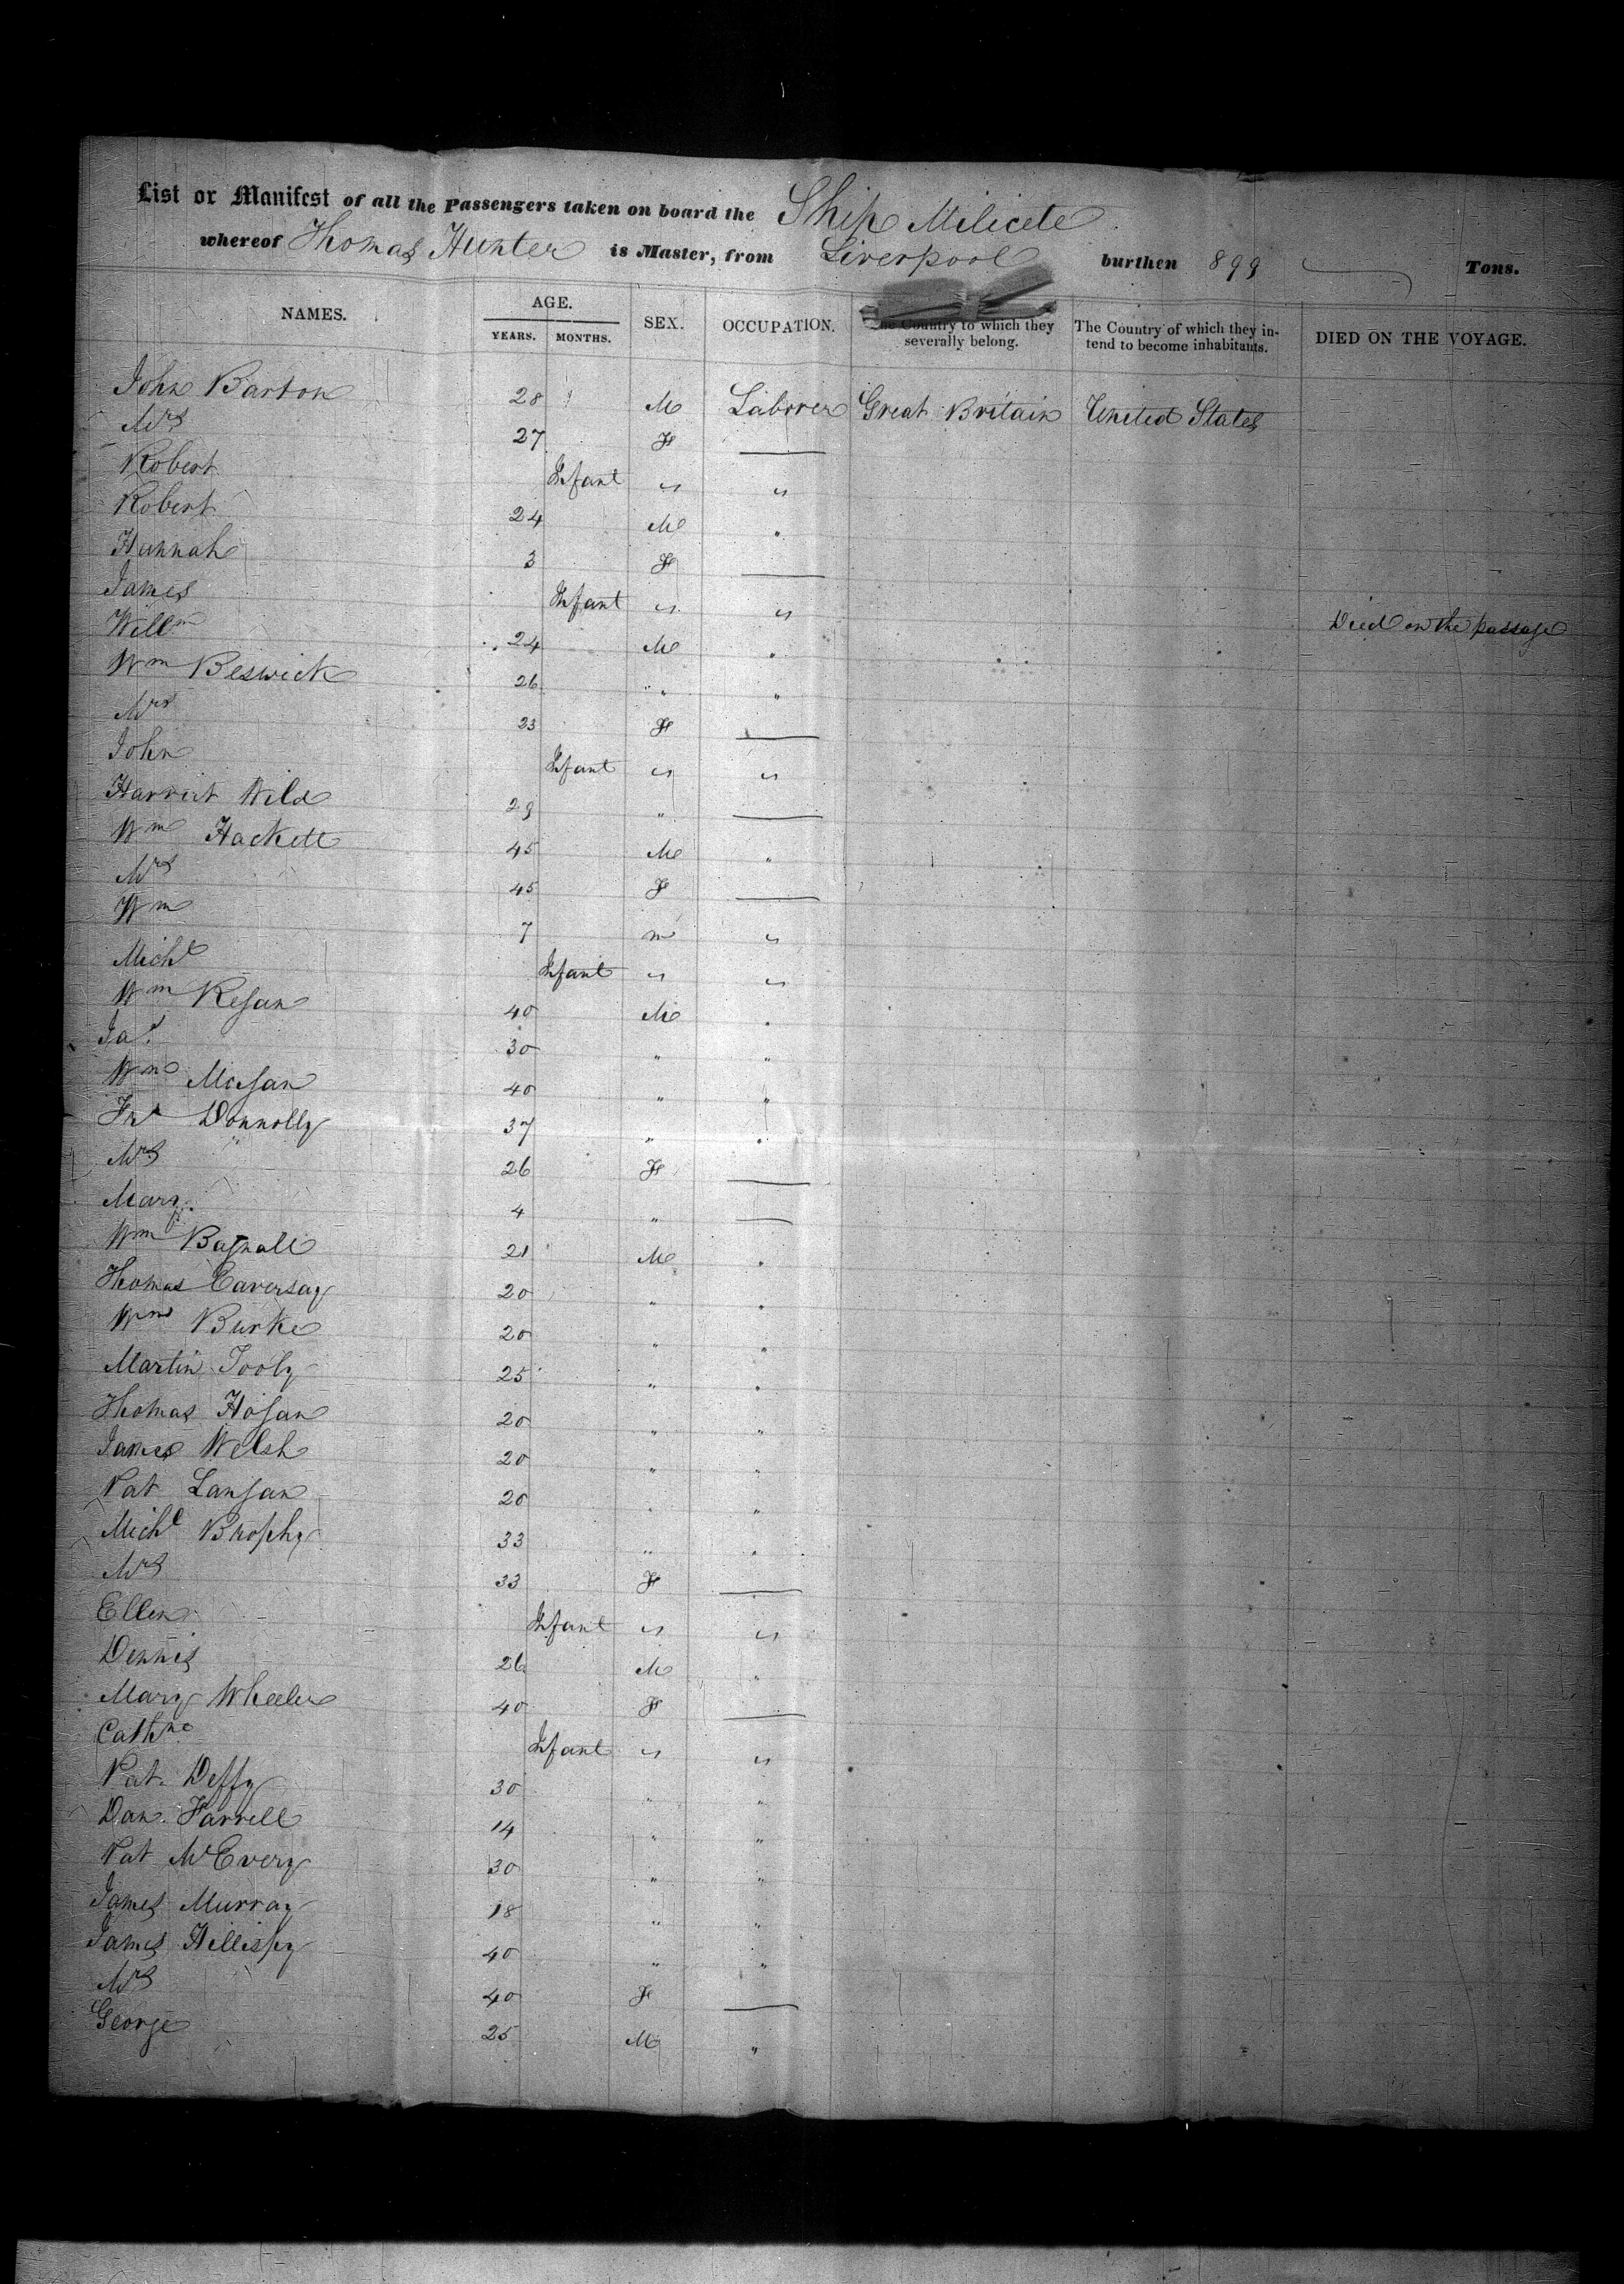 List or Manifest of all the Passengers taken on board the Ship Milicete
whereof Thomas Hunter is Master, from Liverpool burthen 899 Tons.
NAMES. AGE. YEARS. MONTHS. SEX. OCCUPATION. The Country to which they severally belong. The Country of which they intend to become inhabitants. DIED ON THE VOYAGE.
John Barton 28 M Laborer Great Britain United States
Mrs 27 F —
Robert Infant " "
Robert 24 M "
Hannah 3 F —
James Infant " " Died on the passage
Willm 24 M "
Wm Beswick 26 " "
Mrs 23 F —
John Infant " "
Harriet Wild 29 " —
Wm Hackett 45 M "
Mrs 45 F —
Wm 7 m "
Michl Infant " "
Wm Regan 40 M "
Jas 30 " "
Wm 40 " "
Jno Donnolly 37 " "
Mrs " 26 F —
Mary 4 " —
Wm Bagnall 21 M "
Thomas 20 " "
Wm Burke 20 " "
Martin Tooly 25 " "
Thomas Hogan 20 " "
James Welsh 20 " "
Pat Langan 20 " "
Michl Brophy 33 " "
Mrs 33 F —
Ellen Infant " "
Dennis 26 M "
Mary Wheeler 40 F —
Cathne Infant " "
Pat. Deffy 30 " "
Dan. Farrell 14 " "
Pat McEvery 30 " "
James Murray 18 " "
James 40 " "
Mrs 40 F —
George 25 M "